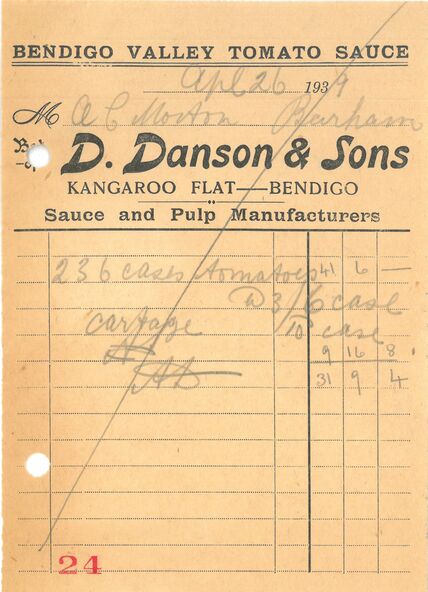 BENDIGO VALLEY TOMATO SAUCE
Apl 26 1939
M A C Morton Barham
D. Danson & Sons
KANGAROO FLAT—BENDIGO
Sauce and Pulp Manufacturers
236 cases tomatoes 41 6 —
@ 3/6 case
cartage 10 case
9 16 8
31 9 4
24